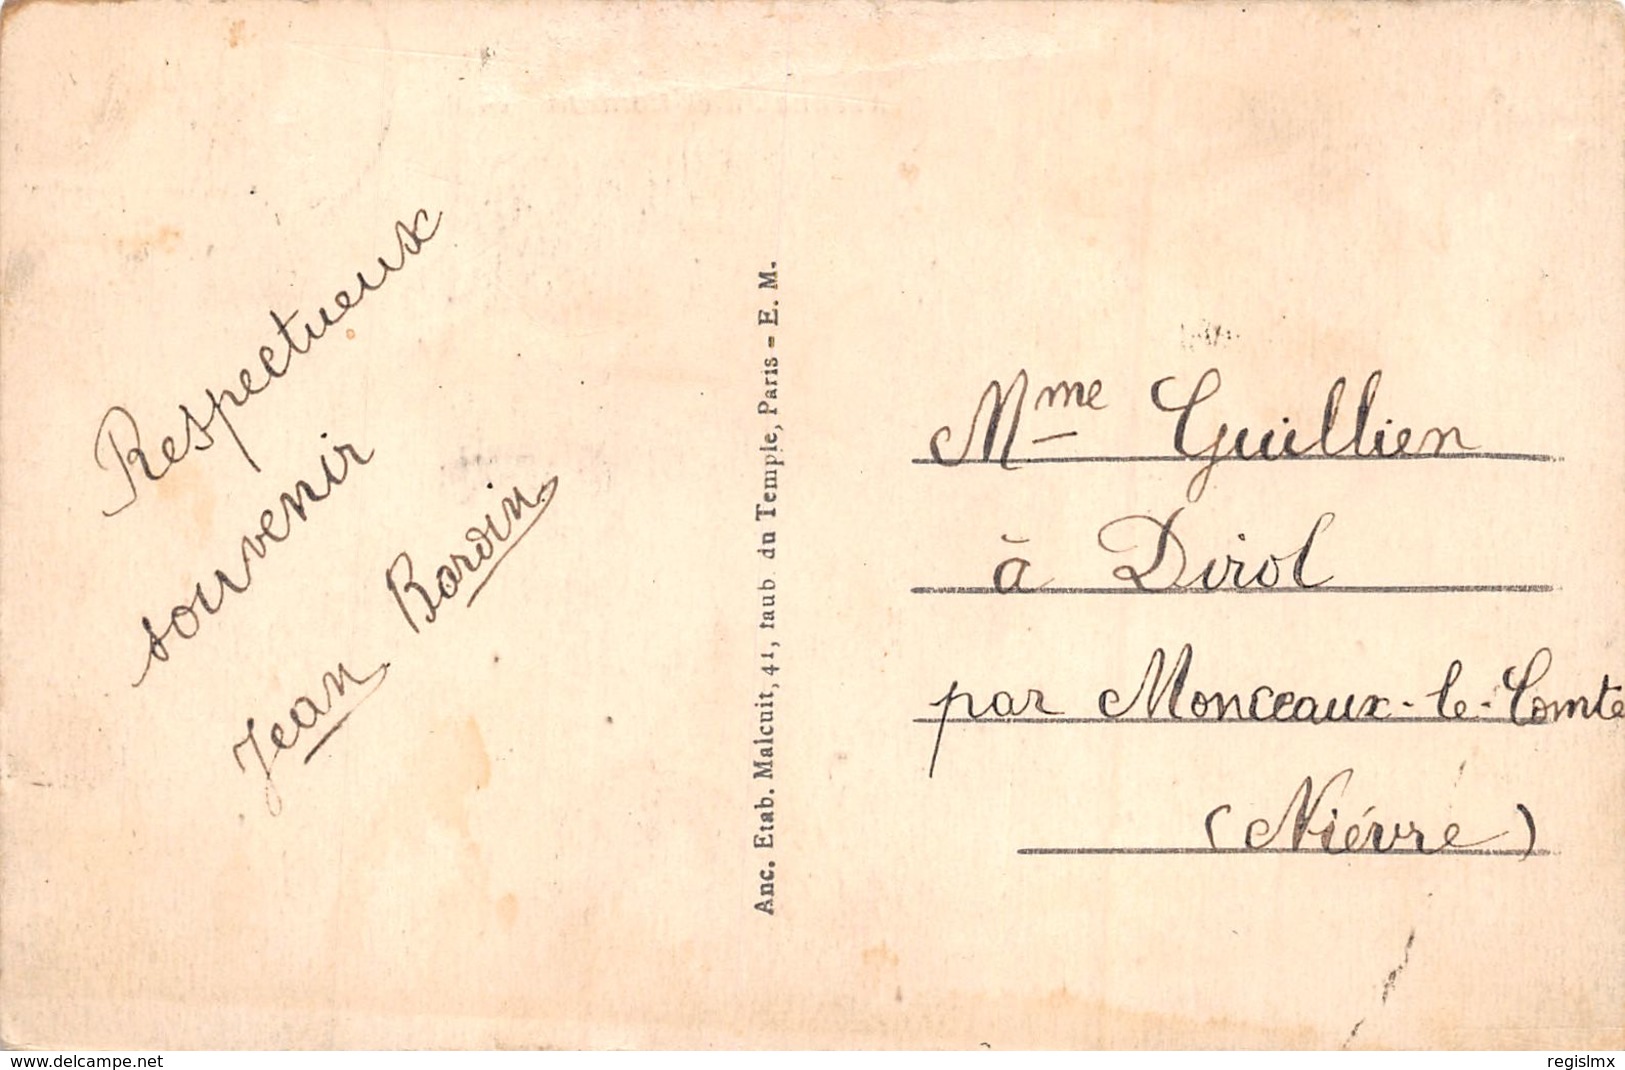 Respectueux
souvenir
Jean Bardin
Anc. Etab. Malcuit, 41, faub. du Temple, Paris - E. M.
Mme Guillien
à Dirol
par Monceaux-le-Comte
(Nièvre)
www.delcampe.net
regislmx